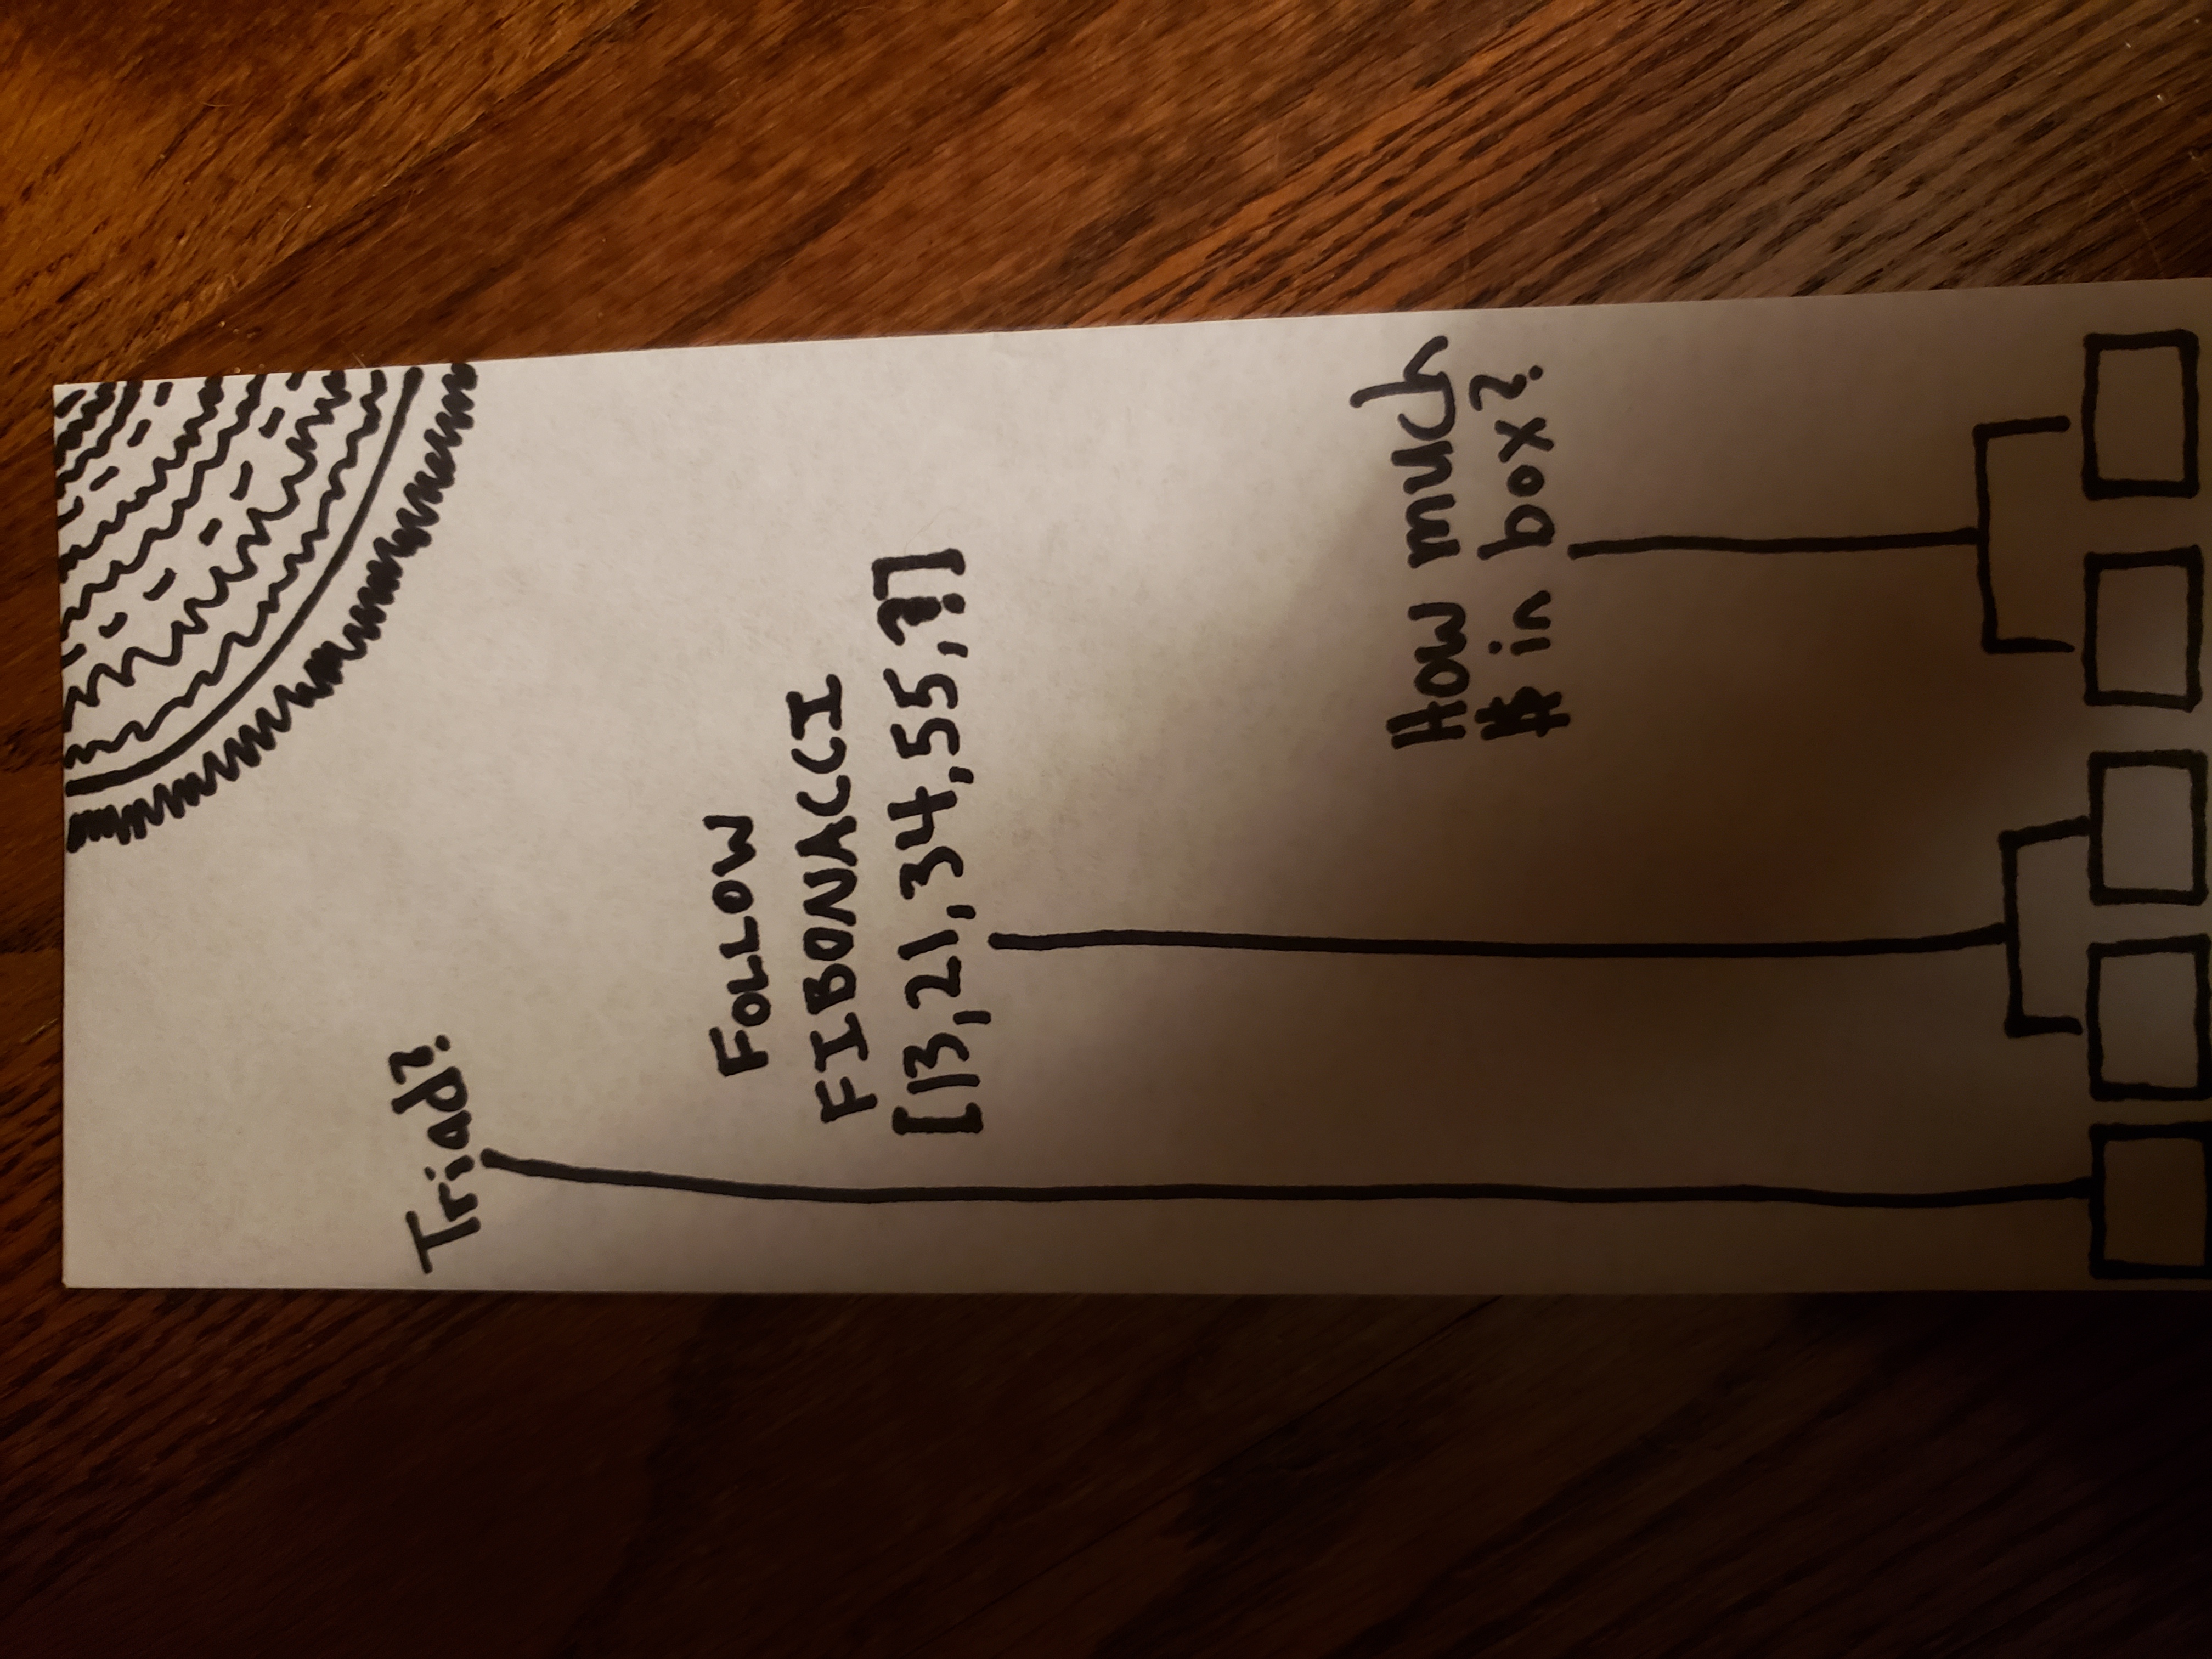 Triad?
FOLLOW
FIBONACCI
[13, 21, 34, 55, ?]
How much
$ in box?